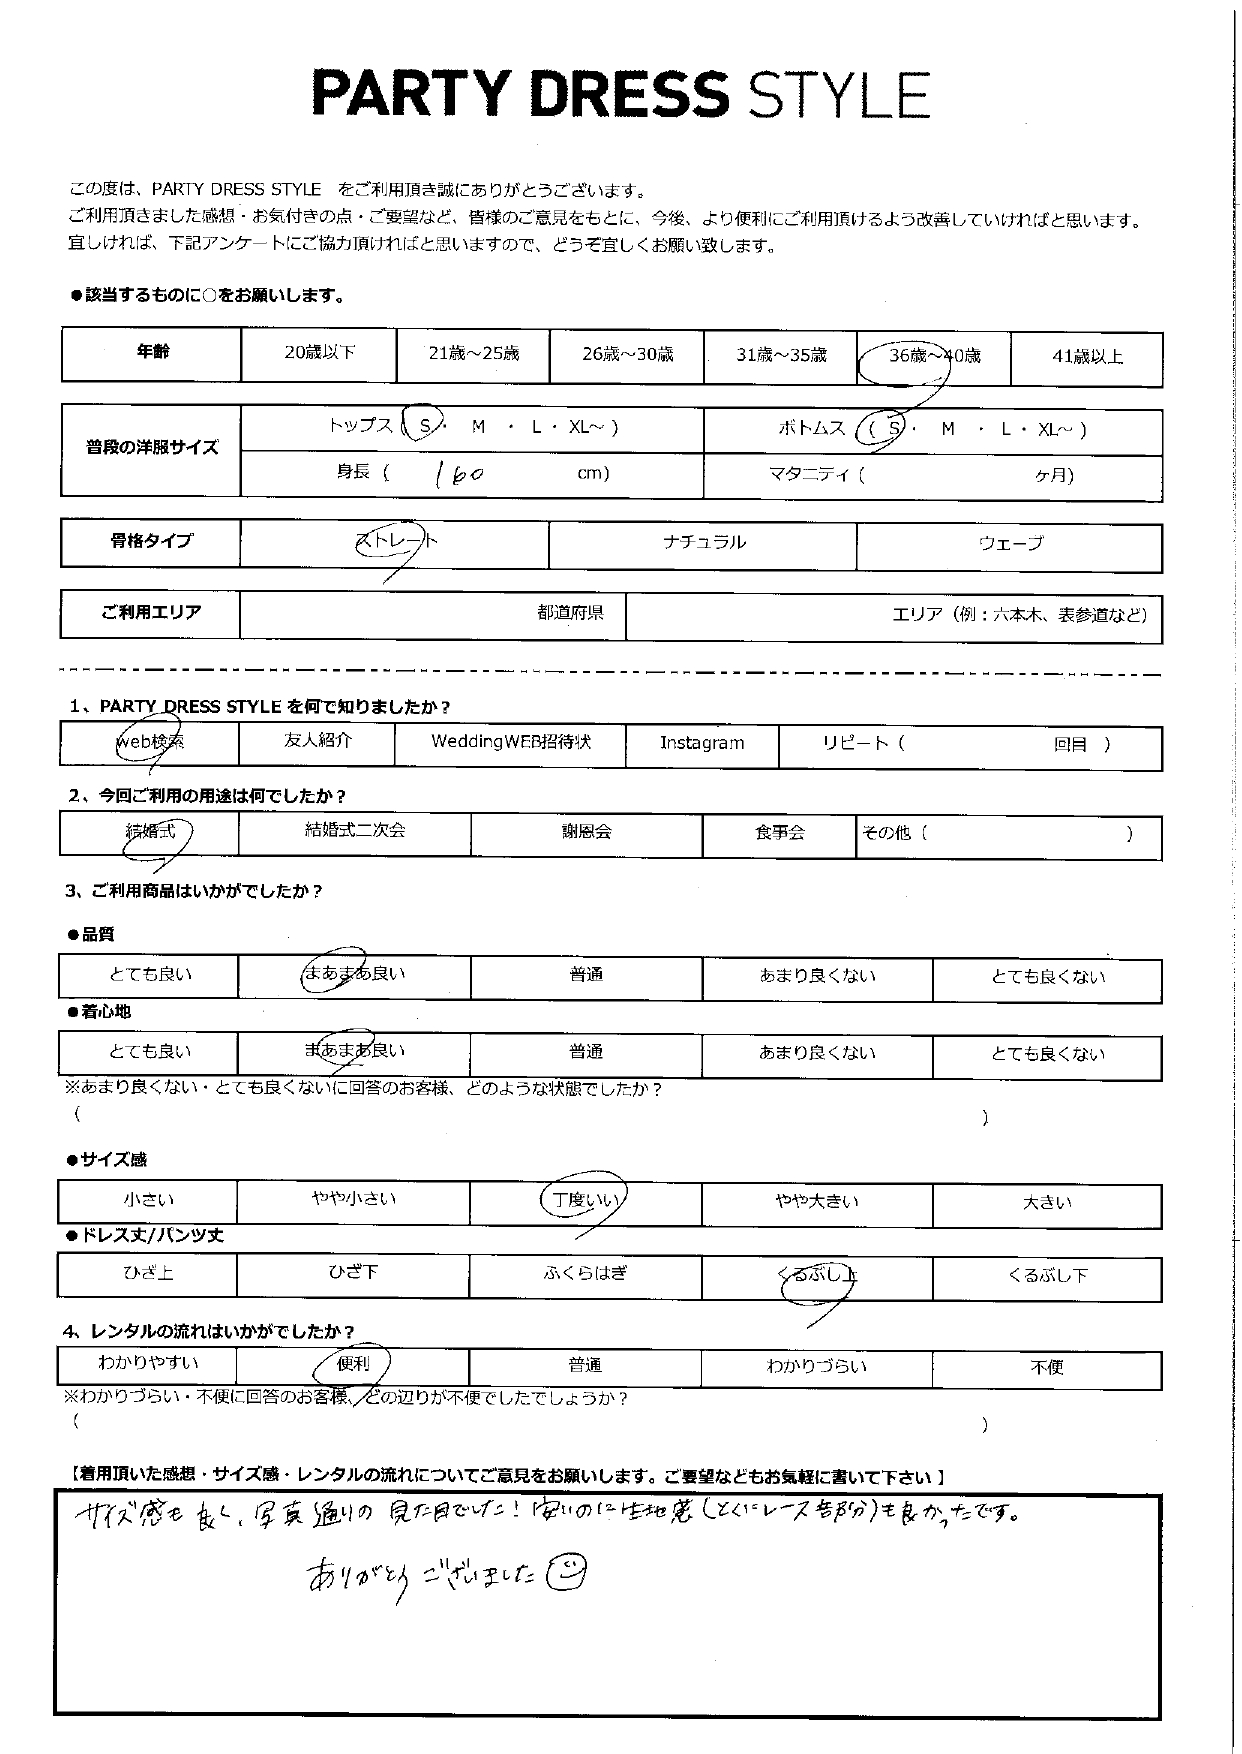 PARTY DRESS STYLE
この度は、PARTY DRESS STYLE をご利用頂き誠にありがとうございます。
ご利用頂きました感想・お気付きの点・ご要望など、皆様のご意見をもとに、今後、より便利にご利用頂けるよう改善していければと思います。
宜しければ、下記アンケートにご協力頂ければと思いますので、どうぞ宜しくお願い致します。
●該当するものに○をお願いします。
年齢 20歳以下 21歳～25歳 26歳～30歳 31歳～35歳 36歳～40歳 41歳以上
普段の洋服サイズ トップス ( S ・ M ・ L ・ XL～ ) ボトムス ( S ・ M ・ L ・ XL～ )
身長 ( 160 cm) マタニティ ( ヶ月)
骨格タイプ ストレート ナチュラル ウェーブ
ご利用エリア 都道府県 エリア（例：六本木、表参道など）
1、PARTY DRESS STYLE を何で知りましたか？
web検索 友人紹介 WeddingWEB招待状 Instagram リピート ( 回目 )
2、今回ご利用の用途は何でしたか？
結婚式 結婚式二次会 謝恩会 食事会 その他 ( )
3、ご利用商品はいかがでしたか？
●品質
とても良い まあまあ良い 普通 あまり良くない とても良くない
●着心地
とても良い まあまあ良い 普通 あまり良くない とても良くない
※あまり良くない・とても良くないに回答のお客様、どのような状態でしたか？
( )
●サイズ感
小さい やや小さい 丁度いい やや大きい 大きい
●ドレス丈/パンツ丈
ひざ上 ひざ下 ふくらはぎ くるぶし上 くるぶし下
4、レンタルの流れはいかがでしたか？
わかりやすい 便利 普通 わかりづらい 不便
※わかりづらい・不便に回答のお客様、どの辺りが不便でしたでしょうか？
( )
【着用頂いた感想・サイズ感・レンタルの流れについてご意見をお願いします。ご要望などもお気軽に書いて下さい】
サイズ感も良く、写真通りの見た目でした！安いのに生地感（とくにレース部分）も良かったです。
ありがとうございました